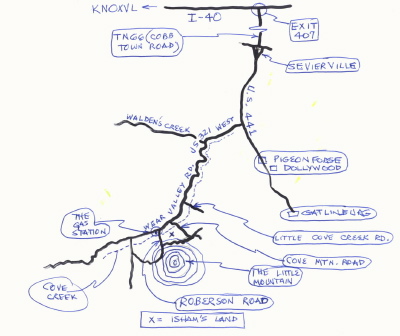 KNOXVL
I-40
EXIT
407
TN66 (COBB
TOWN ROAD)
SEVIERVILLE
U.S. 441
WALDEN'S CREEK
U.S. 321 WEST
PIGEON FORGE
DOLLYWOOD
WEAR VALLEY RD.
THE
GAS
STATION
GATLINBURG
LITTLE COVE CREEK RD.
COVE MTN. ROAD
X
COVE
CREEK
THE LITTLE
MOUNTAIN
ROBERSON ROAD
X = ISHAM'S LAND